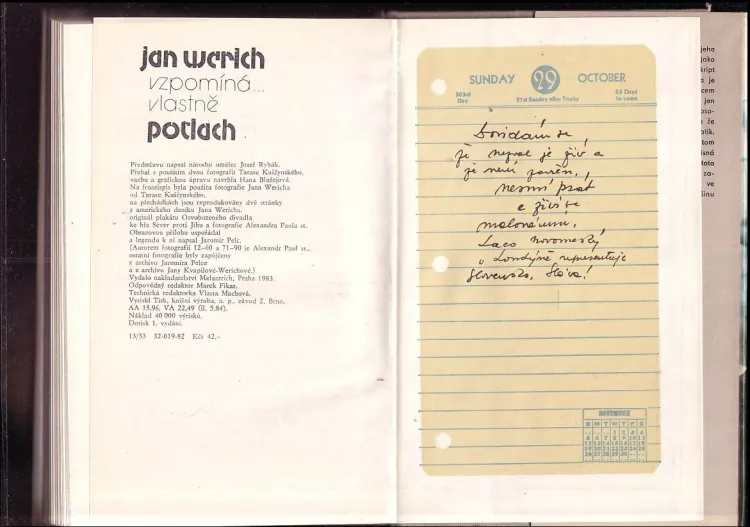 jan werich
vzpomíná...
vlastně
potlach
Předmluvu napsal národní umělec Josef Rybák.
Přebal s použitím dvou fotografií Tarase Kuščynského,
vazbu a grafickou úpravu navrhla Hana Blažejová.
Na frontispis byla použita fotografie Jana Wericha
od Tarase Kuščynského,
na předsádkách jsou reprodukovány dvě stránky
z amerického deníku Jana Wericha,
originál plakátu Osvobozeného divadla
ke hře Sever proti Jihu a fotografie Alexandra Paula st.
Obrazovou přílohu uspořádal
a legendu k ní napsal Jaromír Pelc.
(Autorem fotografií 12–60 a 71–90 je Alexandr Paul st.,
ostatní fotografie byly zapůjčeny
z archívu Jaromíra Pelce
a z archívu Jany Kvapilové-Werichové.)
Vydalo nakladatelství Melantrich, Praha 1983.
Odpovědný redaktor Marek Fikar.
Technická redaktorka Vlasta Machová.
Vytiskl Tisk, knižní výroba, n. p., závod 2, Brno.
AA 15,96, VA 22,49 (il. 5,84).
Náklad 40 000 výtisků.
Dotisk 1. vydání.
13/33 32-019-82 Kčs 42,-
SUNDAY 29 OCTOBER
303rd Day
21st Sunday after Trinity
63 Days to come
že nepral je živ a
že není
nesmí prát
a živí se
malováním.
Laco Novomeský
v Londýně representuje
Slovensko. Sláva!
NOVEMBER
S M T W T F S
1 2 3 4
5 6 7 8 9 10 11
12 13 14 15 16 17 18
19 20 21 22 23 24 25
26 27 28 29 30
jeho
jako
kript
a je
cem
jen
že
atik.
tom
tato
za-
ve
šinu